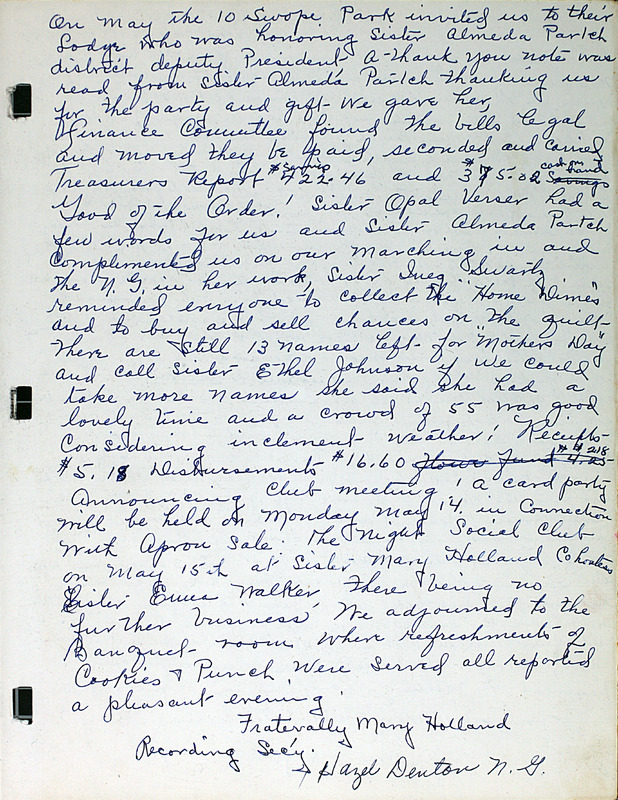 On May the 10 Swope Park invited us to their
Lodge who was honoring Sister Almeda Partch
district deputy President A thank you note was
read from Sister Almeda Partch thanking us
for the party and gift we gave her,
Finance Committee found the bills legal
and moved they be paid, seconded and carried
Treasurers Report $422.46 and $375.02 cash on hand Savings
Good of the Order! Sister Opal Verser had a
few words for us and Sister Almeda Partch
Complimented us on our Marching in and
the N.G. in her work, Sister Inez Swartz
reminded everyone to collect the "Home Dimes"
and to buy and sell chances on the quilt-
There are still 13 names left for "Mothers Day"
and call Sister Ethel Johnson if we could
take more names she said she had a
lovely time and a crowd of 55 was good
Considering inclement weather! Receipts-
$5.18 Disbursements $16.60 Flour Fund
Announcing Club meeting! a card party
will be held on Monday May 14. in Connection
with Apron Sale. The Night Social Club
on May 15th at Sister Mary Holland Cohostess
Sister Emma Walker There being no
further business We adjourned to the
Banquet room where refreshments of
Cookies & Punch were served all reported
a pleasant evening.
Fraternally Mary Holland
Recording Sec'y.
Hazel Denton N.G.